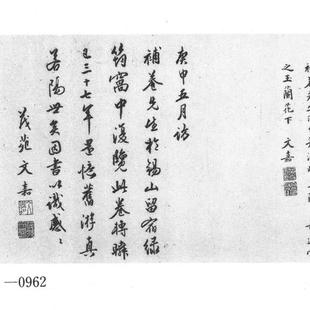 之玉蘭花下 文嘉
庚申五月訪
補菴先生於錫山留宿緑
筠窩中復覽此卷轉瞬
已三十七年憶舊游真
若隔世矣因書以識感〻
茂苑文嘉
—0962